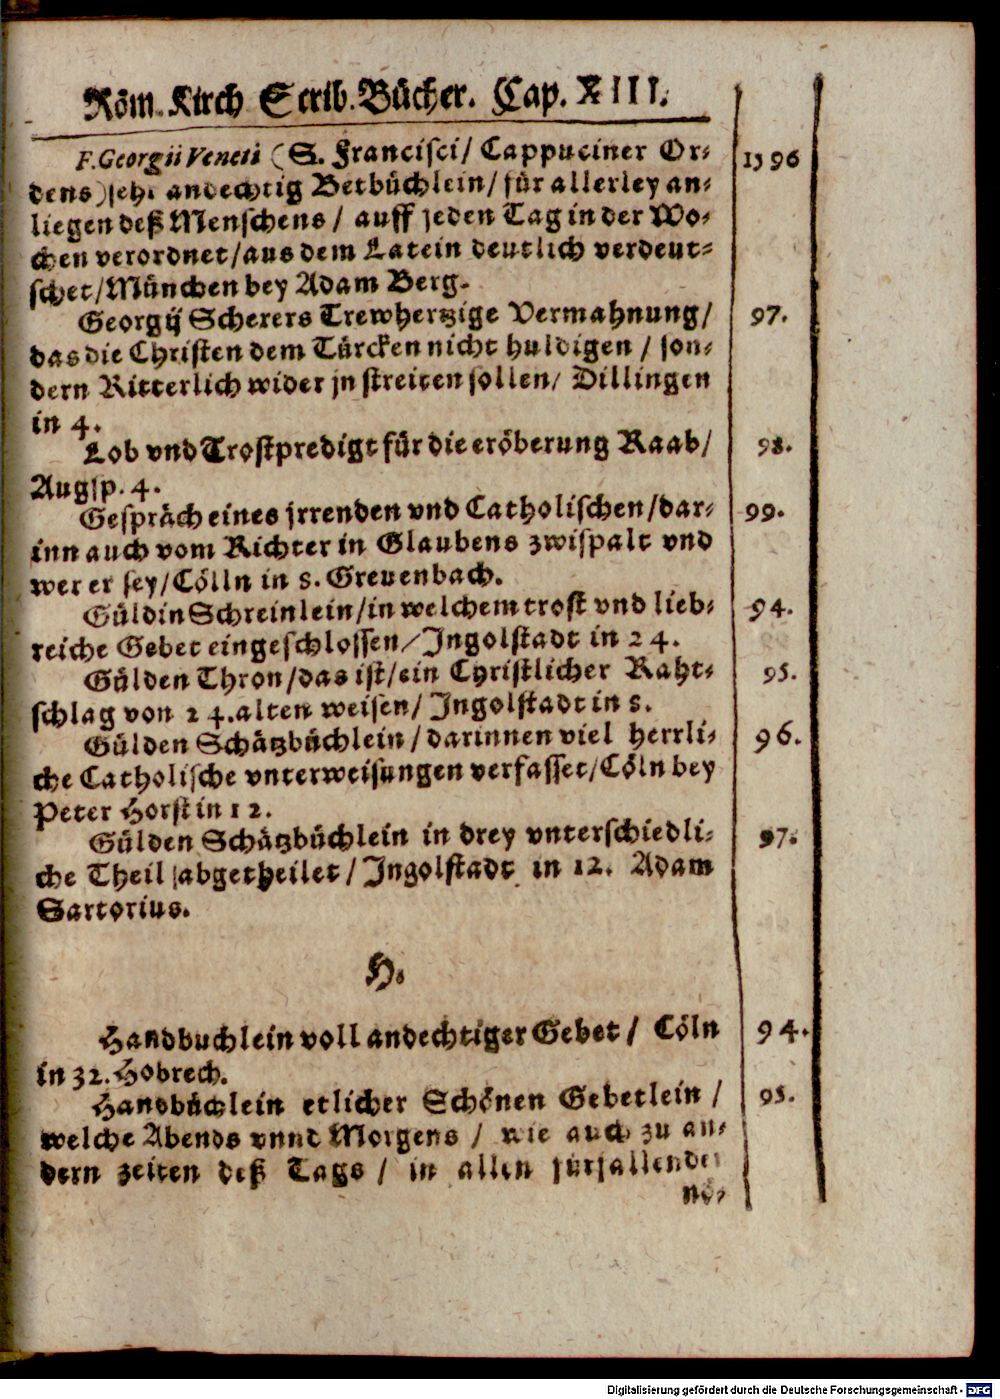 Röm. Kirch Scrib. Bücher. Cap. XIII.
F. Georgii Veneti (S. Francisci/ Cappuciner Or- 1596
dens) sehr andechtig Betbüchlein/ für allerley an-
liegen deß Menschens / auff jeden Tag in der Wo-
chen verordnet/ aus dem Latein deutlich verdeut-
schet/ München bey Adam Berg.
Georgij Scherers Trewhertzige Vermahnung/ 97.
das die Christen dem Türcken nicht huldigen / son-
dern Ritterlich wider jn streiten sollen/ Dillingen
in 4.
Lob vnd Trostpredigt für die eröberung Raab/ 98.
Augsp. 4.
Gespräch eines jrrenden vnd Catholischen/ dar- 99.
inn auch vom Richter in Glaubens zwispalt vnd
wer er sey/ Cölln in 8. Greuenbach.
Güldin Schreinlein/ in welchem trost vnd lieb- 94.
reiche Gebet eingeschlossen/ Jngolstadt in 24.
Gülden Thron/ das ist/ ein Christlicher Raht- 95.
schlag von 24. alten weisen/ Jngolstadt in 8.
Gülden Schätzbüchlein/ darinnen viel herrli- 96.
che Catholische vnterweisungen verfasset/ Cöln bey
Peter Horst in 12.
Gülden Schätzbüchlein in drey vnterschiedli- 97.
che Theil abgetheilet/ Jngolstadt in 12. Adam
Sartorius.
H.
Handbuchlein voll andechtiger Gebet / Cöln 94.
in 32. Hobrech.
Handbüchlein etlicher Schönen Gebetlein / 95.
welche Abends vnnd Morgens / wie auch zu an-
dern zeiten deß Tags / in allen fürfallenden
nö-
Digitalisierung gefördert durch die Deutsche Forschungsgemeinschaft - DFG